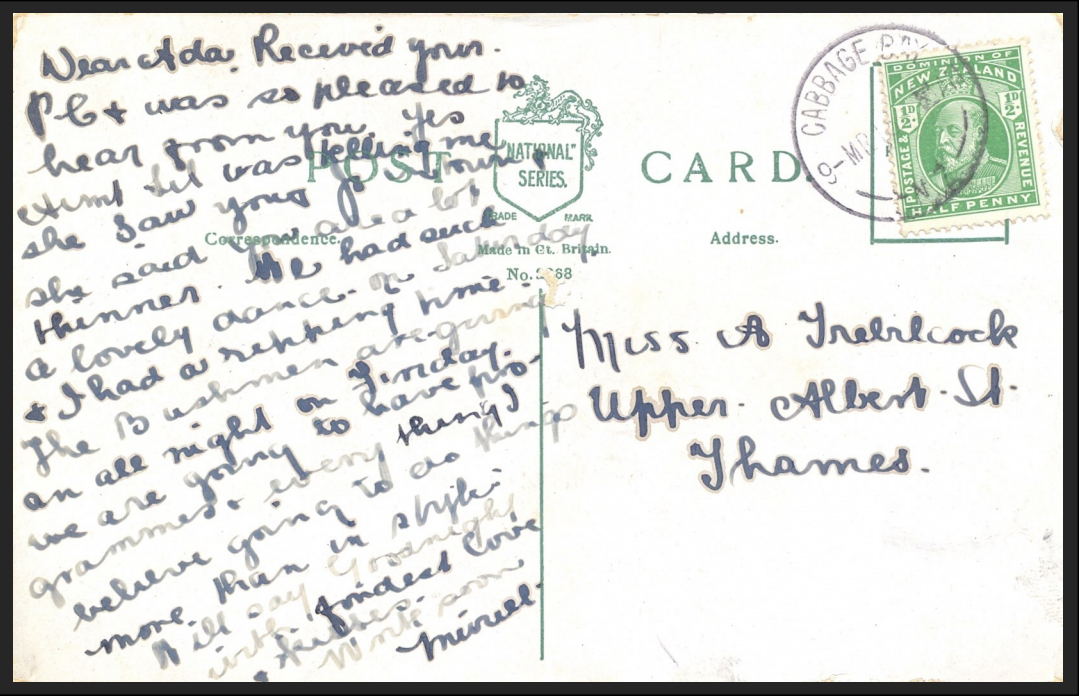 Dear Ada. Received your.
P C + was so pleased to
hear from you. Yes
Aunt Lil was telling me
she saw you &
she said you are a lot
thinner. We had such
a lovely dance. on Saturday
& I had a ripping time.
The Bushmen are giving
an all night on Friday.
we are going to have pro-
grammes + every thing I
believe going to do things
more than in style.
Will say Goodnight
with fondest love
& kisses. Write soon
Muriel.
POST CARD
"NATIONAL"
SERIES.
TRADE MARK
Correspondence.
Made in Gt. Britain.
No.
Address.
CABBAGE BAY
9-MR
N Z
DOMINION OF
NEW ZEALAND
½D ½D
POSTAGE &
REVENUE
HALF PENNY
Miss A Trebilcock
Upper. Albert. St.
Thames.